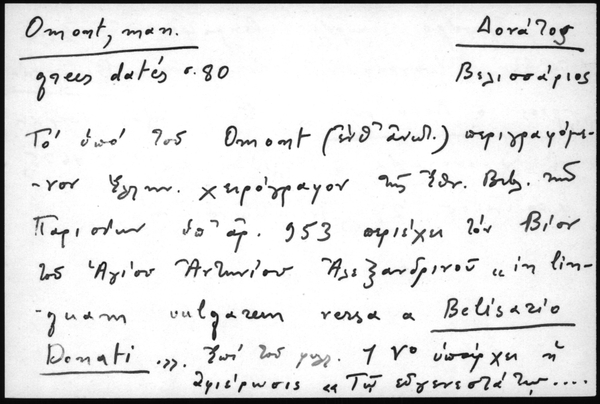 Omont, man. Δονάτος
grecs datés σ. 80 Βελισσάριος
Τό ὑπό τοῦ Omont (ἔνθ' ἀνωτ.) περιγραφόμε-
-νον ἑλλην. χειρόγραφον τῆς Ἐθν. Βιβλ. τῶν
Παρισίων ὑπ' ἀρ. 953 περιέχει τόν Βίον
τοῦ Ἁγίου Ἀντωνίου Ἀλεξανδρινοῦ „ in lin-
-guam vulgarem versa a Belisario
Donati „. Ἐπί τοῦ φυλ. 1 v° ὑπάρχει ἡ
ἀφιέρωσις „ Τῇ εὐγενεστάτῃ ....